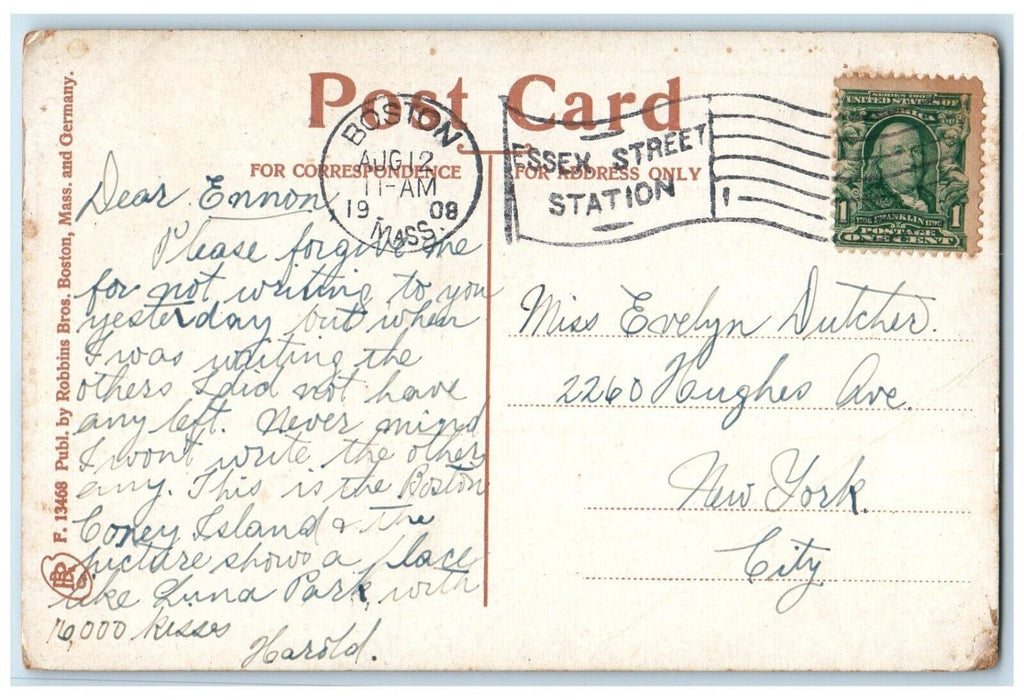 Post Card
FOR CORRESPONDENCE
FOR ADDRESS ONLY
F. 13468 Publ. by Robbins Bros. Boston, Mass. and Germany.
BOSTON
AUG 12
11-AM
1908
MASS.
ESSEX STREET
STATION
SERIES 1902
UNITED STATES OF
AMERICA
1706 FRANKLIN 1790
1 1
POSTAGE
ONE CENT
Dear Ennon,
Please forgive me
for not writing to you
yesterday but when
I was writing the
others I did not have
any left. Never mind
I wont write the other
any. This is the Boston
Coney Island & the
picture shows a place
like Luna Park, with
16,000 kisses
Harold.
Miss Evelyn Dutcher.
2260 Hughes Ave.
New York.
City